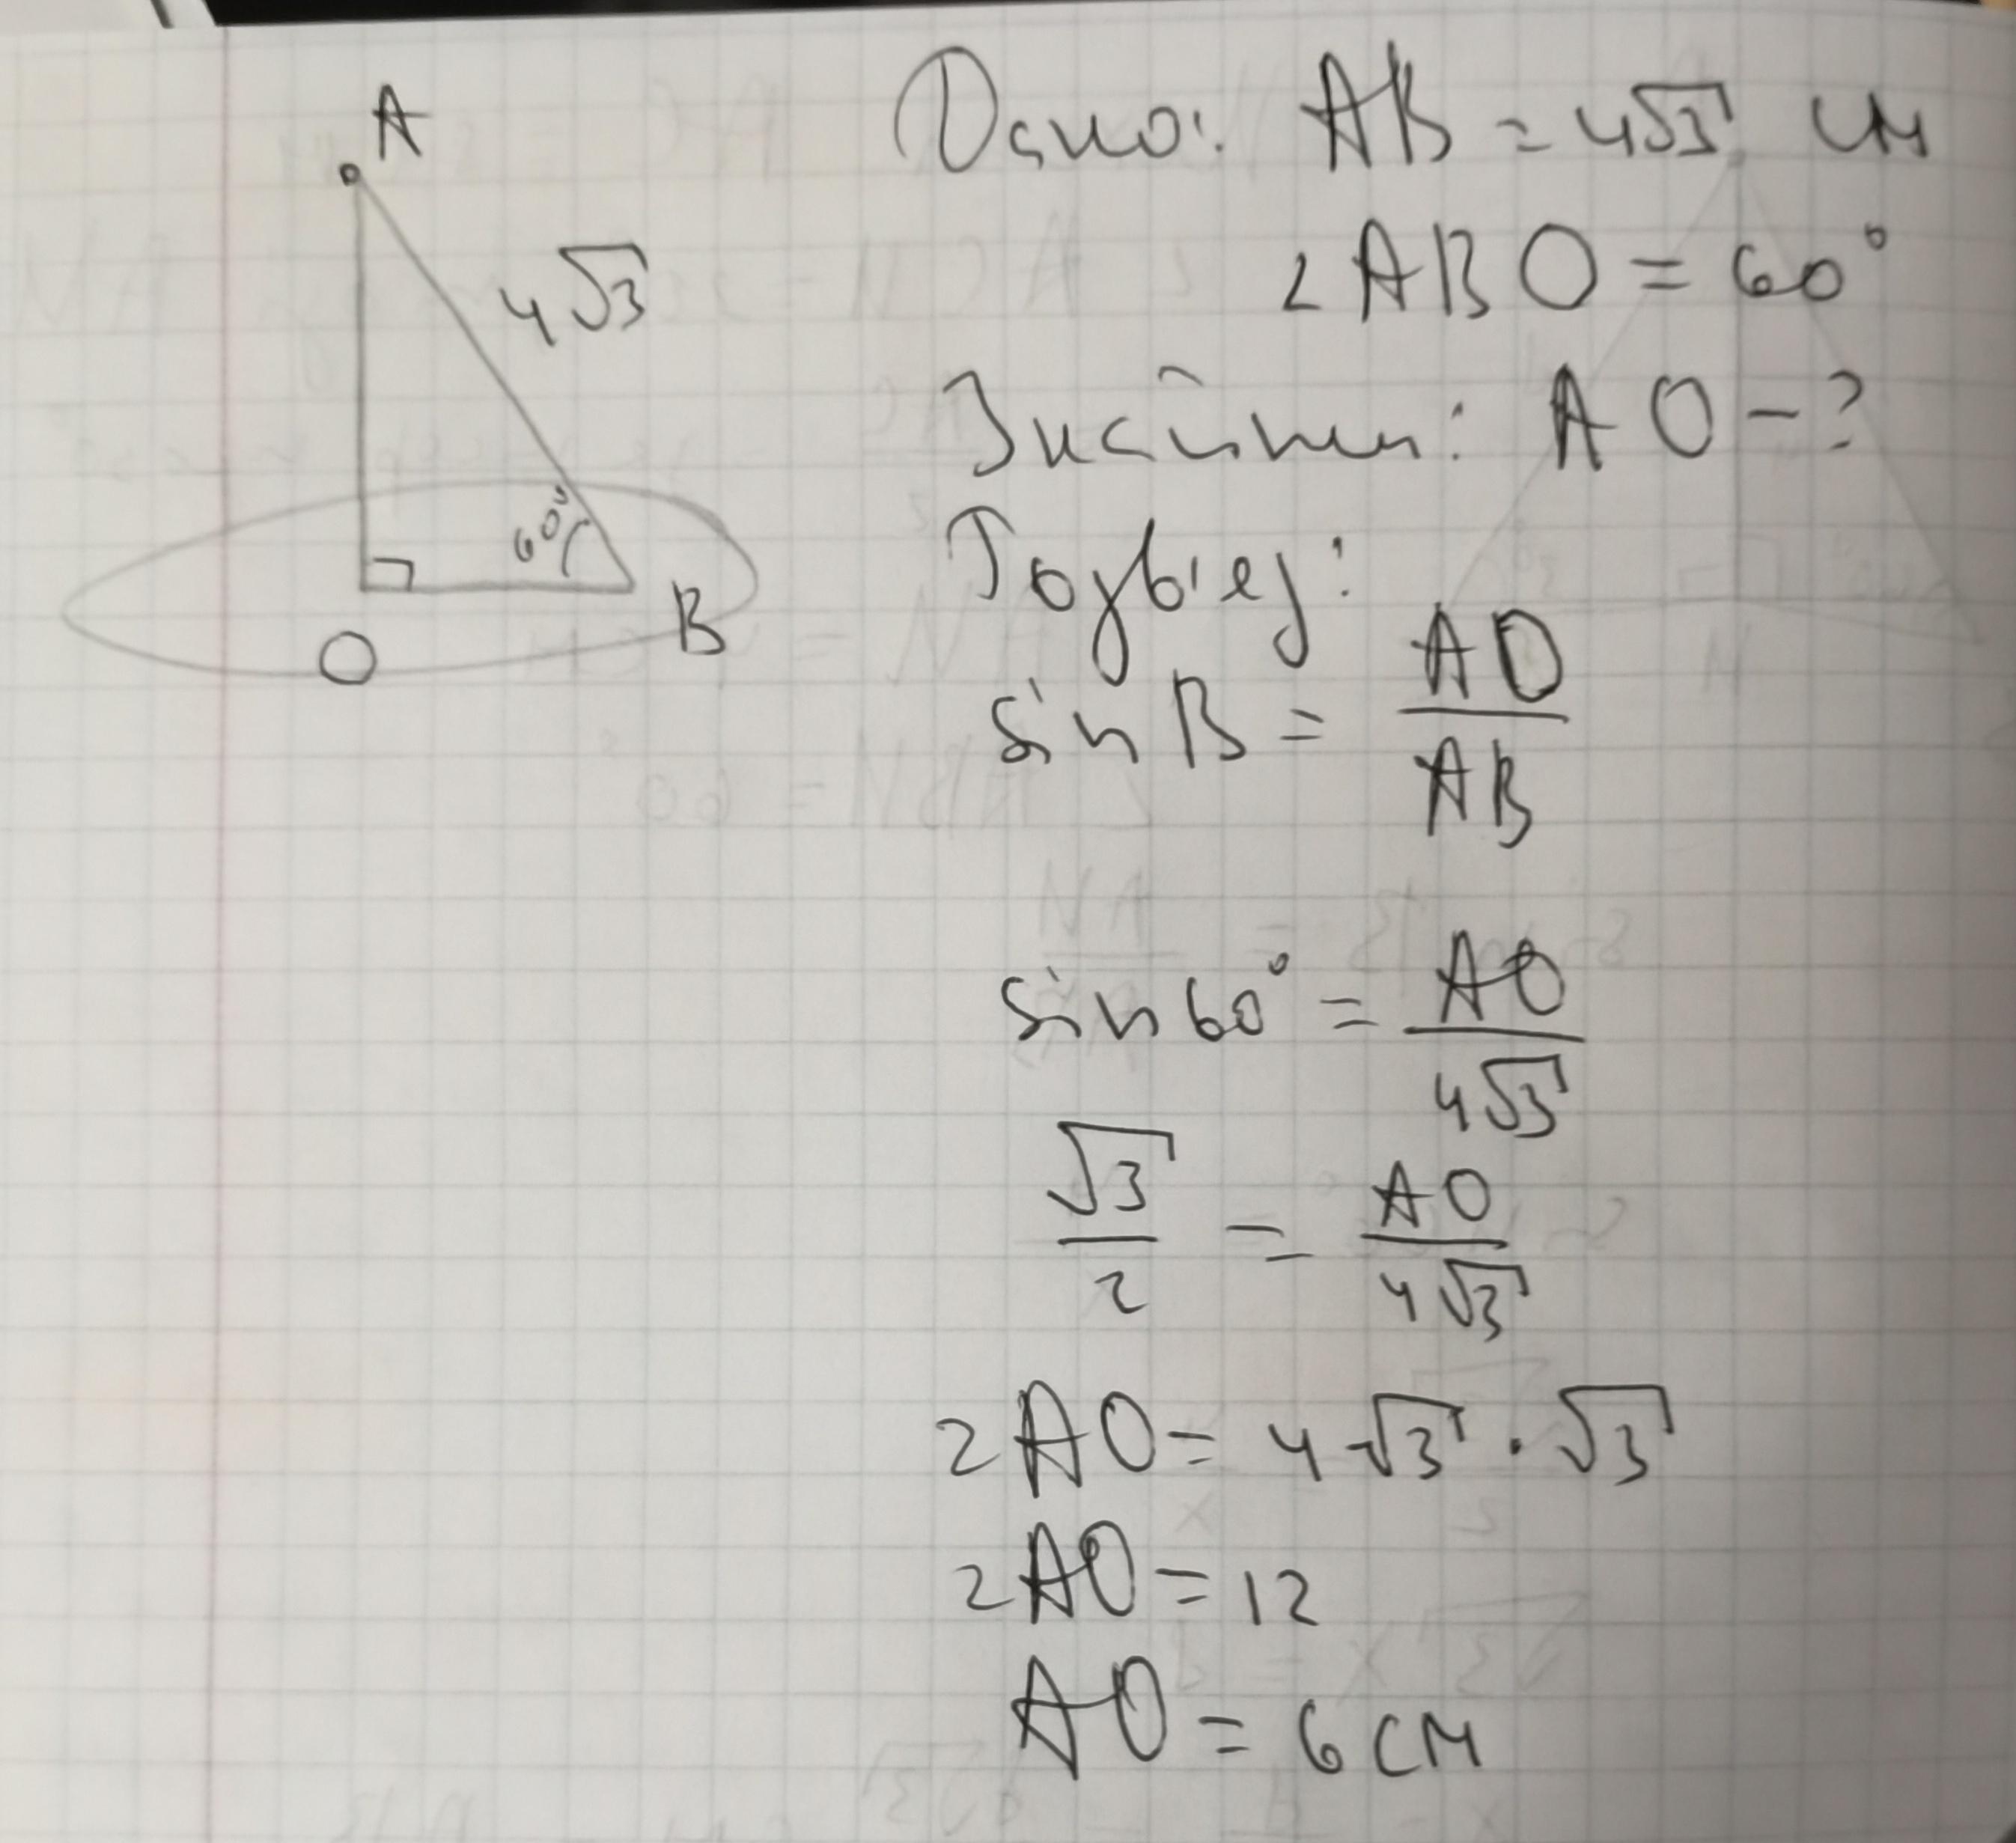 A
4√3
60°
O
B
Дано: AB = 4√3 см
∠ABO = 60°
Знайти: AO - ?
Розв'яз:
sin B = AO / AB
sin 60° = AO / 4√3
√3 / 2 = AO / 4√3
2AO = 4√3 · √3
2AO = 12
AO = 6 см